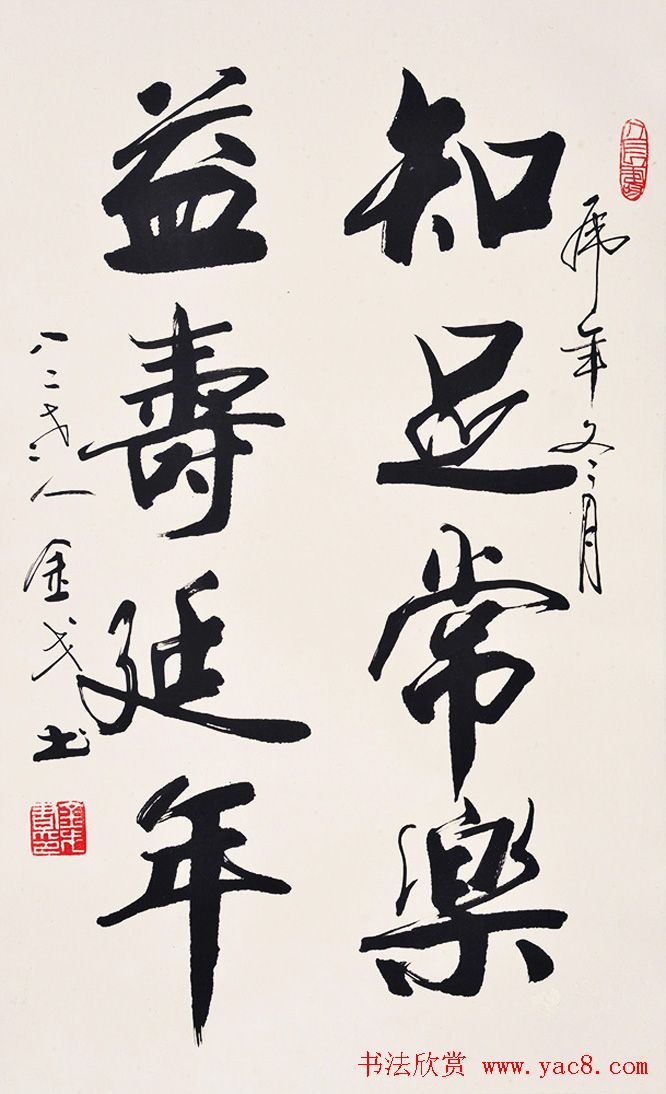 虎年冬月
知足常樂
益壽延年
八二人
金戈书
书法欣赏 www.yac8.com